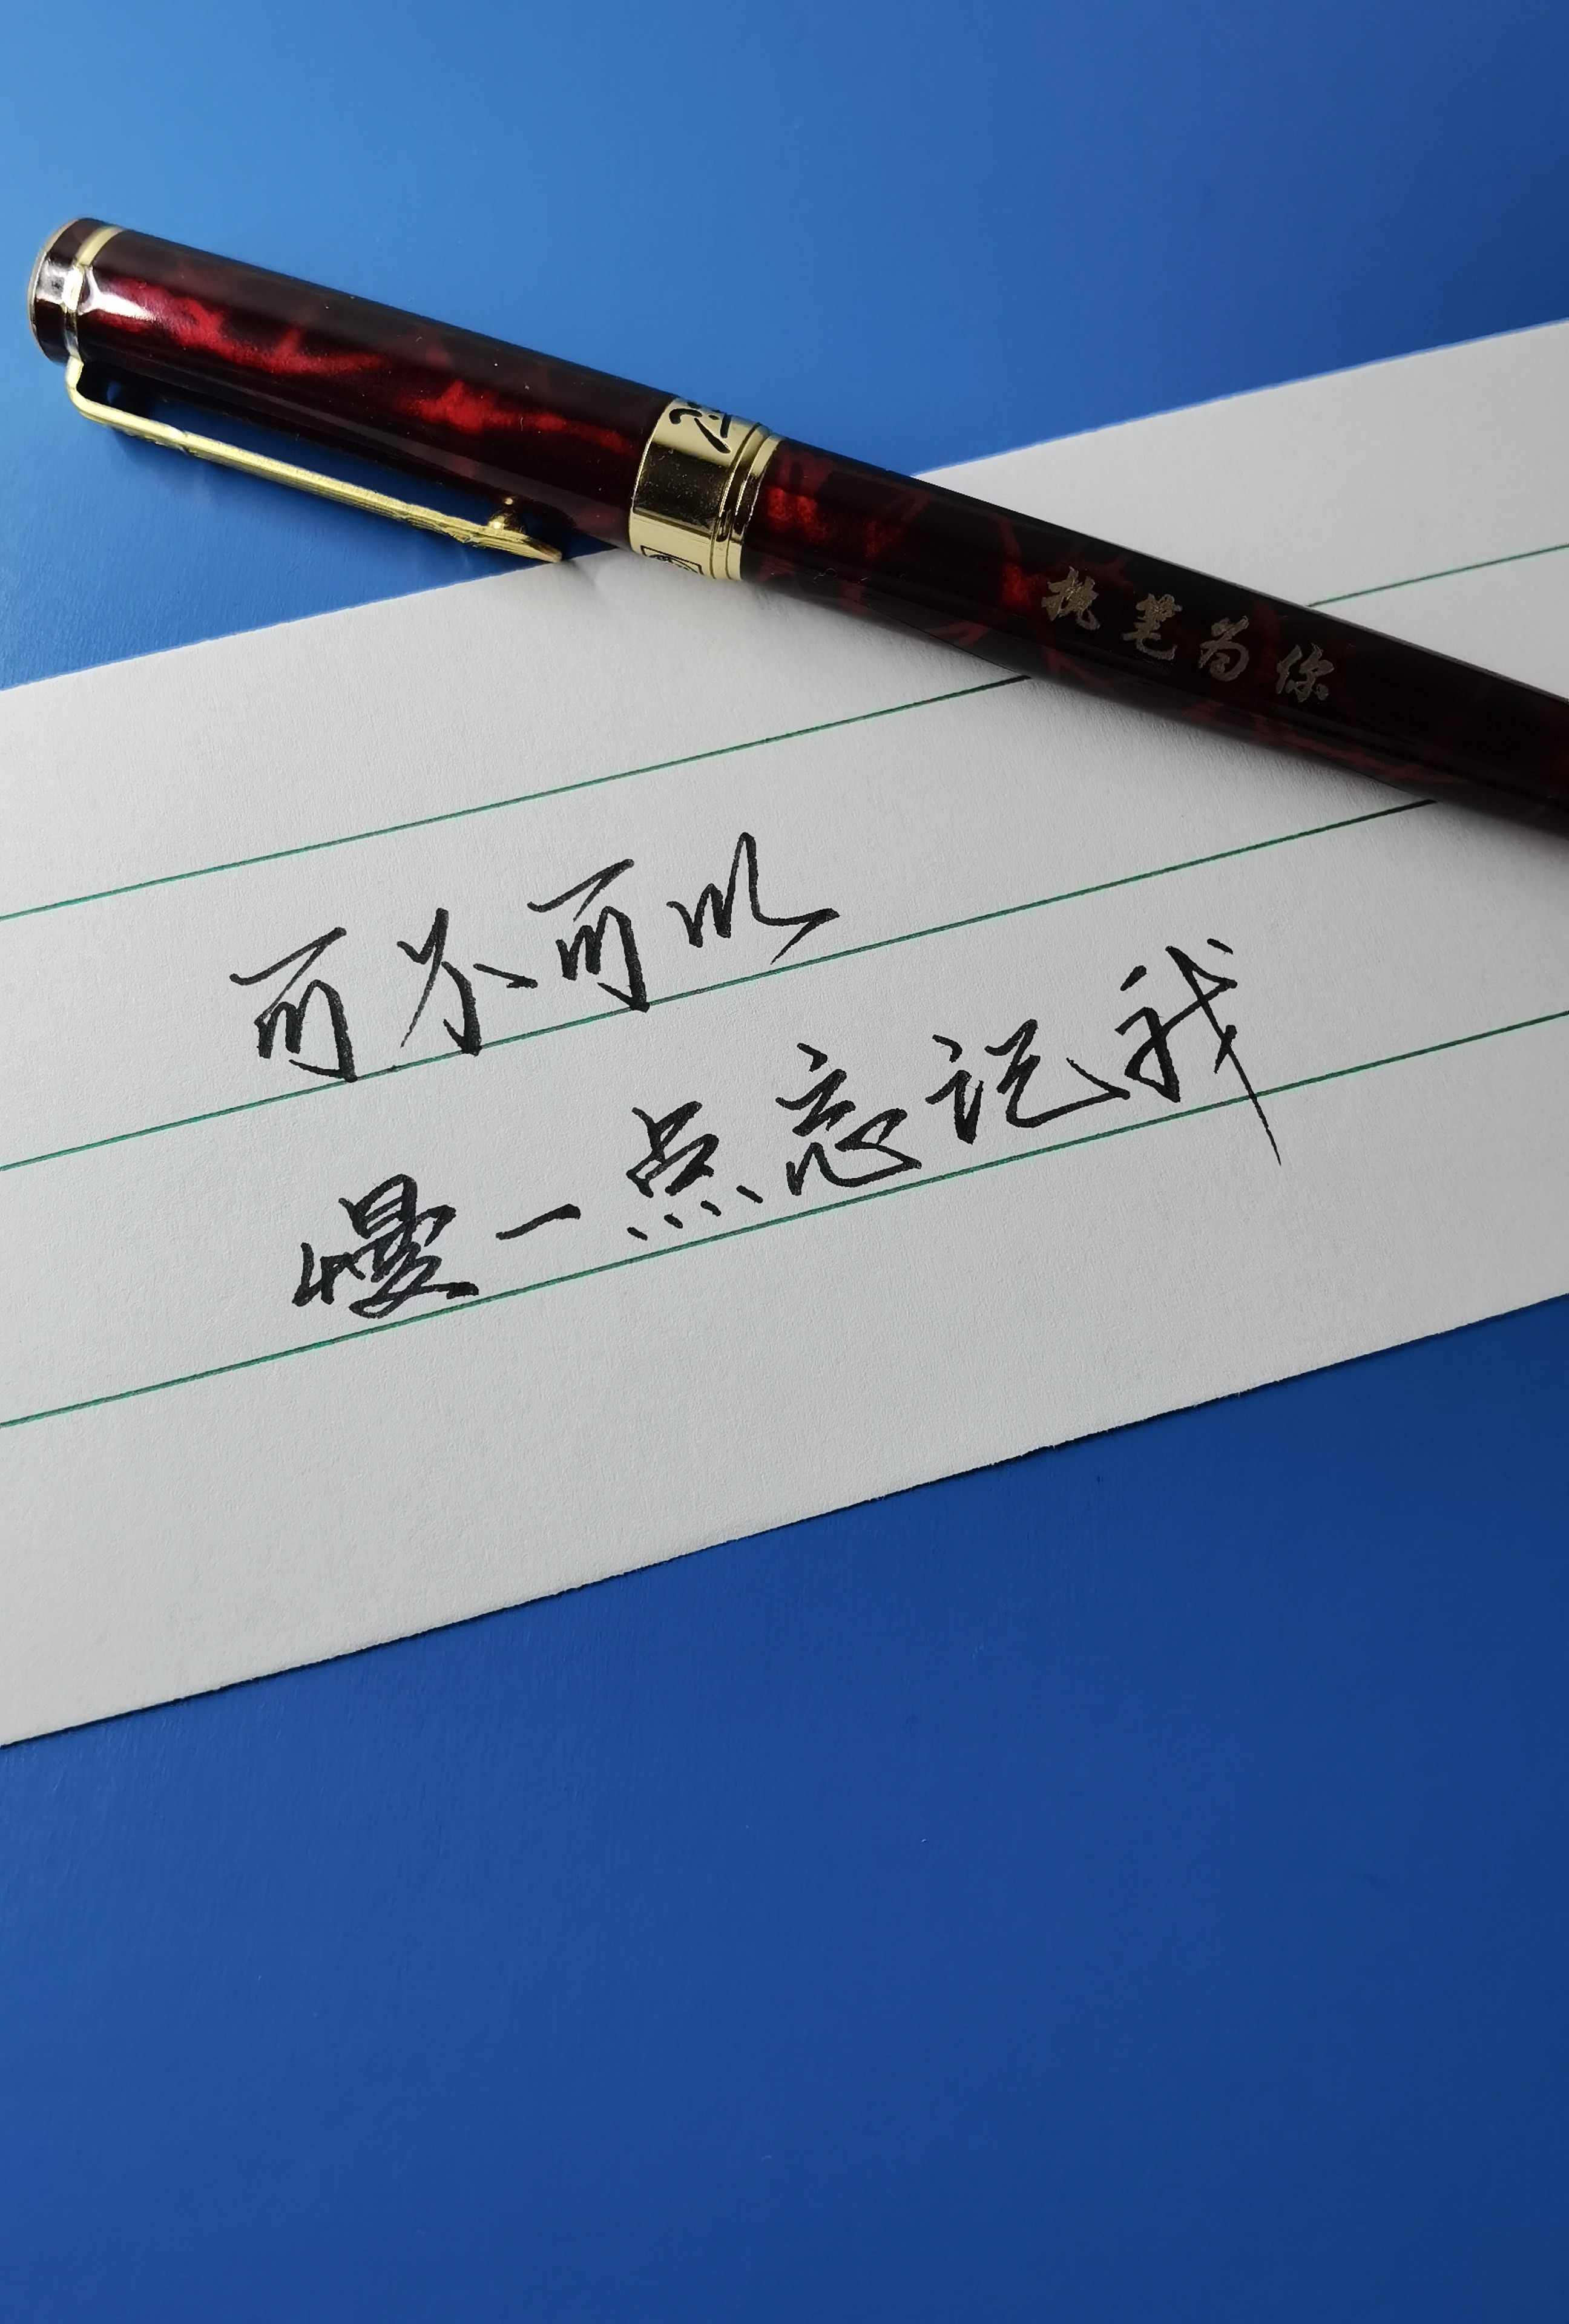 执笔为你
可不可以
慢一点忘记我